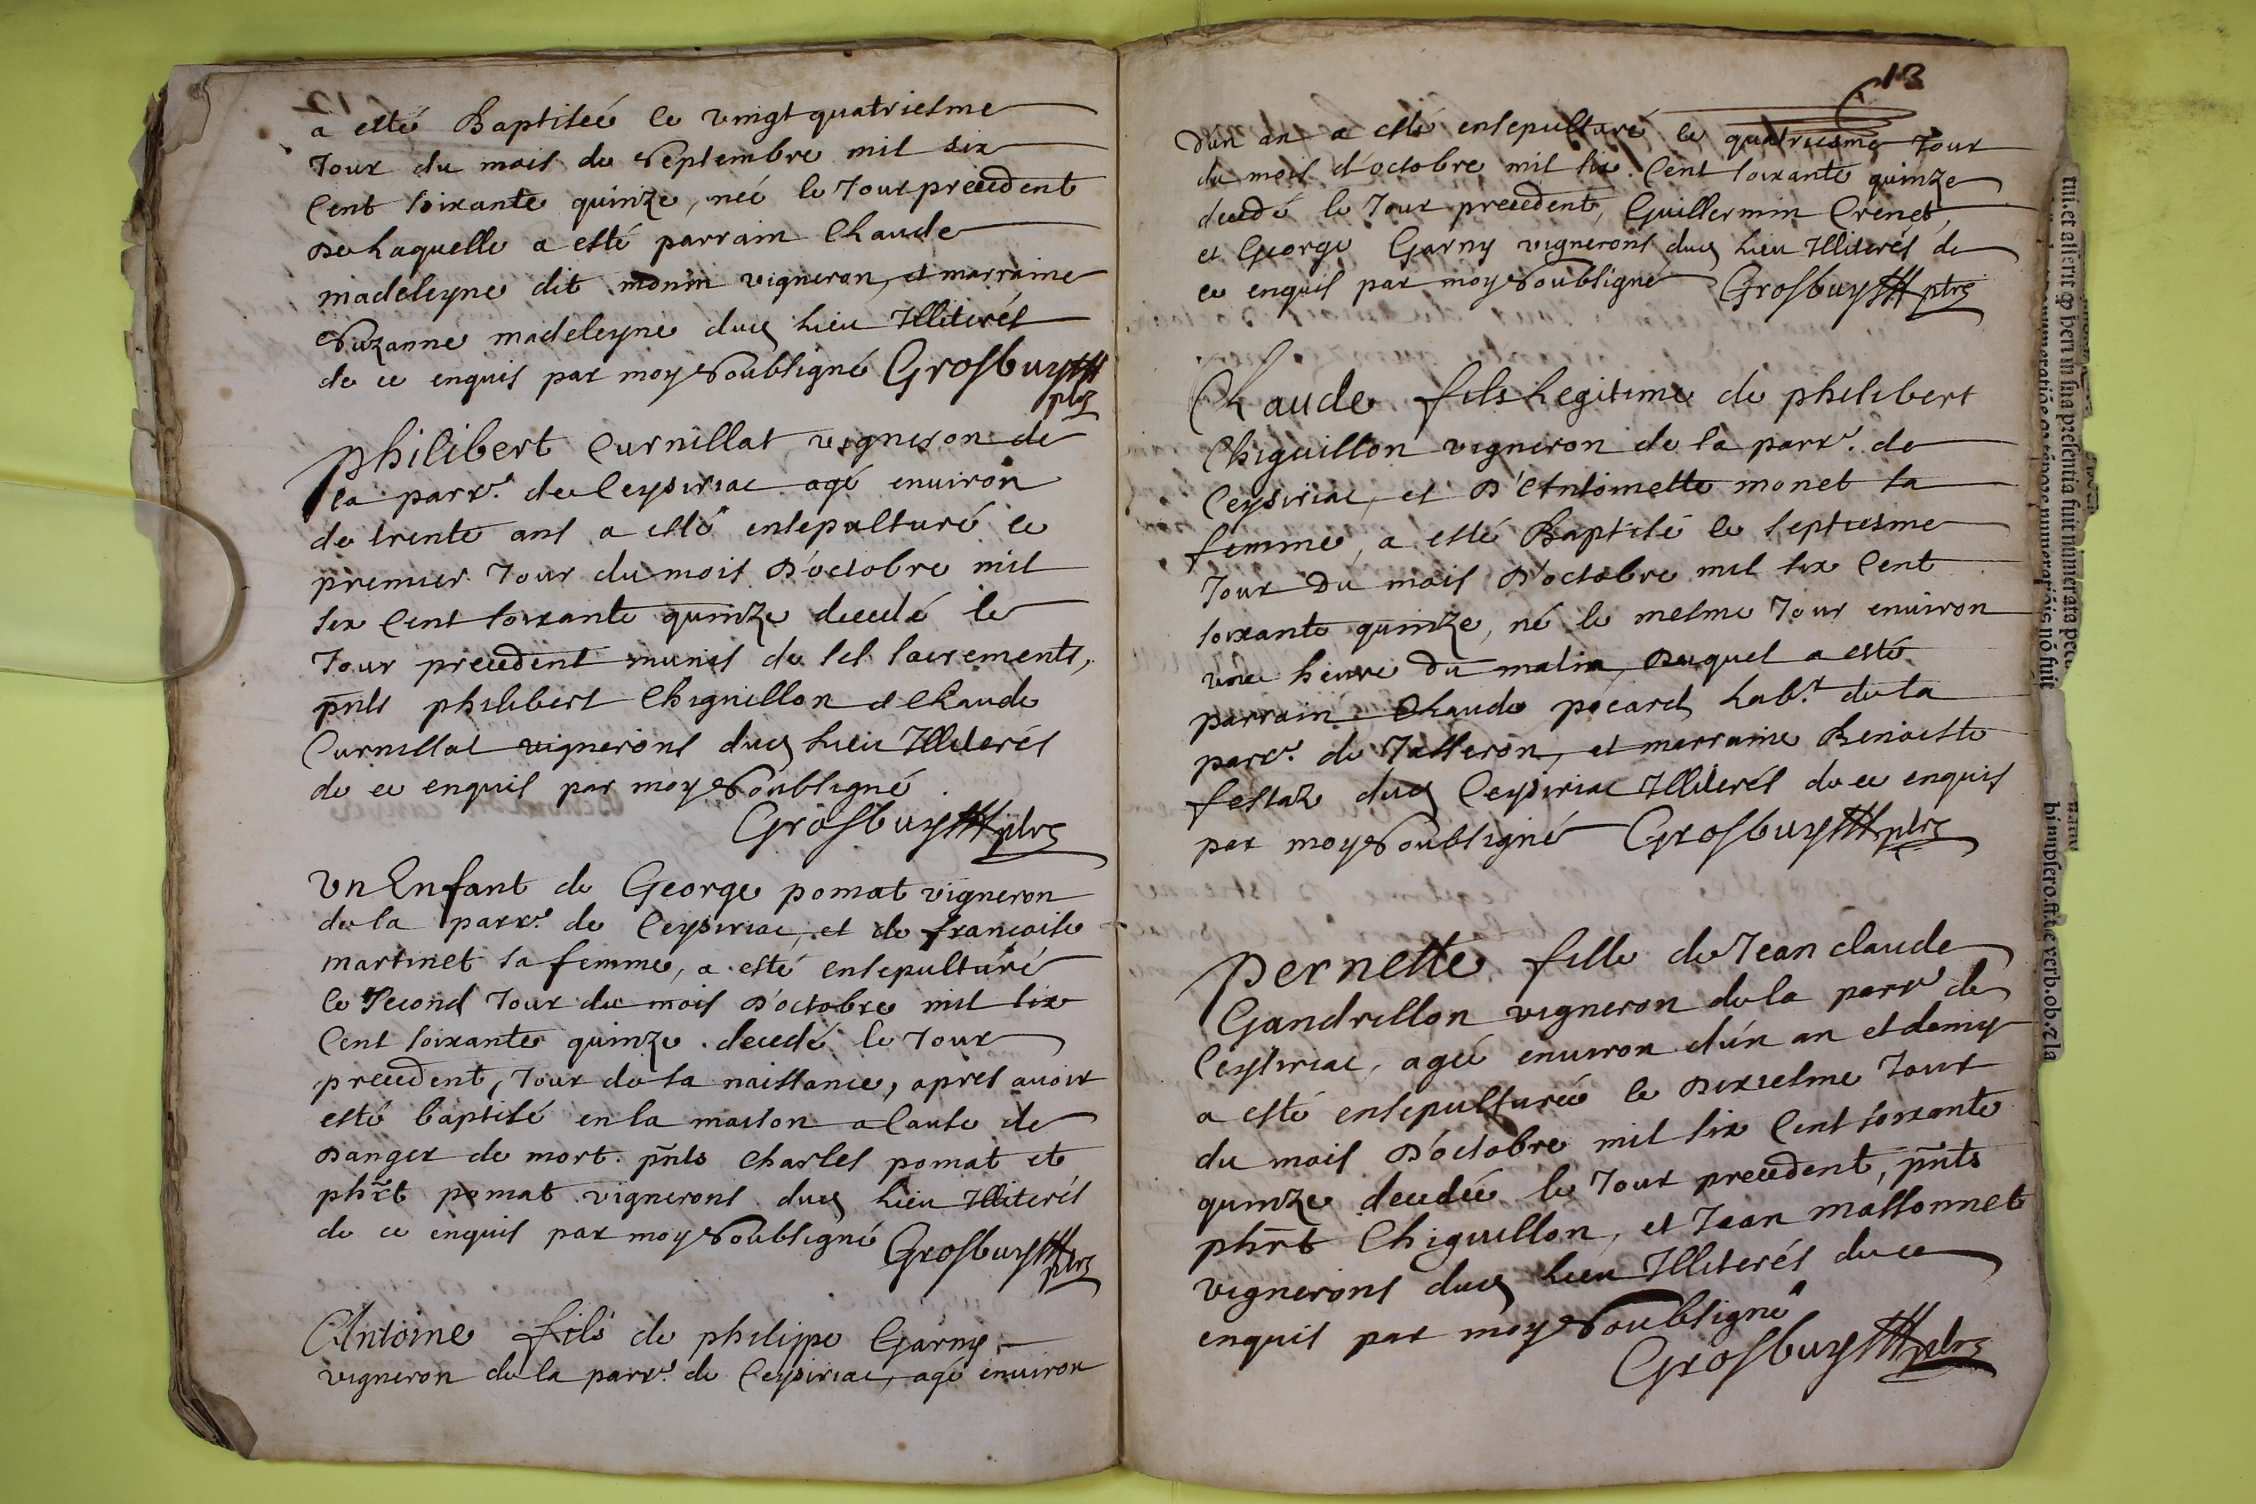 a esté Baptiseé le vingt quatriesme
Jour du mois de Septembre mil six
Cent soixante quinze, neé le Jour precedent
De Laquelle a esté parrain Claude
madeleyne dit monin vigneron, et marraine
Suzanne madeleyne dud Lieu Illiterés
de ce enquis par moy Soubsigné Grosbuy
ptre
philibert Curnillat vigneron de
la parr.e de Ceysiriac agé environ
de trente ans a esté ensepulturé le
premier Jour du mois D'octobre mil
six Cent soixante quinze decedé le
Jour precedent munis de ses sacrements,
pnts philibert Chiguillon et Claude
Curnillat vignerons dud Lieu Illiterés
de ce enquis par moy Soubsigné
Grosbuy ptre
Vn Enfant de George pomat vigneron
de la parr.e de Ceysiriac, et de francoise
martinet sa femme, a esté ensepulturé
le Second Jour du mois D'octobre mil six
Cent soixante quinze decedé le Jour
precedent, Jour de sa naissance, apres auoir
esté baptisé en la maison a Cause de
Danger de mort. pnts Charles pomat et
phrt pomat vignerons dud Lieu Illiterés
de ce enquis par moy Soubsigné Grosbuy
ptre
Antoine fils de philippe Garny
vigneron de la parr.e de Ceysiriac, agé environ
13
d'un an a esté ensepulturé le quatriesme Jour
du mois d'octobre mil six Cent soixante quinze
decedé le Jour precedent, Guillermin Crenet,
et George Garny vignerons dud Lieu Illiterés de
ce enquis par moy Soubsigné Grosbuy ptre
Claude fils Legitime de philibert
Chiguillon vigneron de la parr.e de
Ceysiriac, et D'Antoinette monet sa
femme, a esté Baptisé le septiesme
Jour Du mois D'octobre mil six Cent
soixante quinze, né le mesme Jour environ
vne heure Du matin, Duquel a esté
parrain Claude pocard Lab.r de la
parr.e de Jasseron, et marraine Benoiste
festaz dud Ceysiriac Illiterés de ce enquis
par moy Soubsigné Grosbuy ptre
Pernette fille de Jean claude
Gandrillon vigneron de la parr.e de
Ceysiriac, ageé environ d'un an et demy
a esté ensepultureé le Dixiesme Jour
du mois D'octobre mil six Cent soixante
quinze decedeé le Jour precedent, pnts
phrt Chiguillon, et Jean massonnet
vignerons dud Lieu Illiterés de ce
enquis par moy Soubsigné
Grosbuy ptre